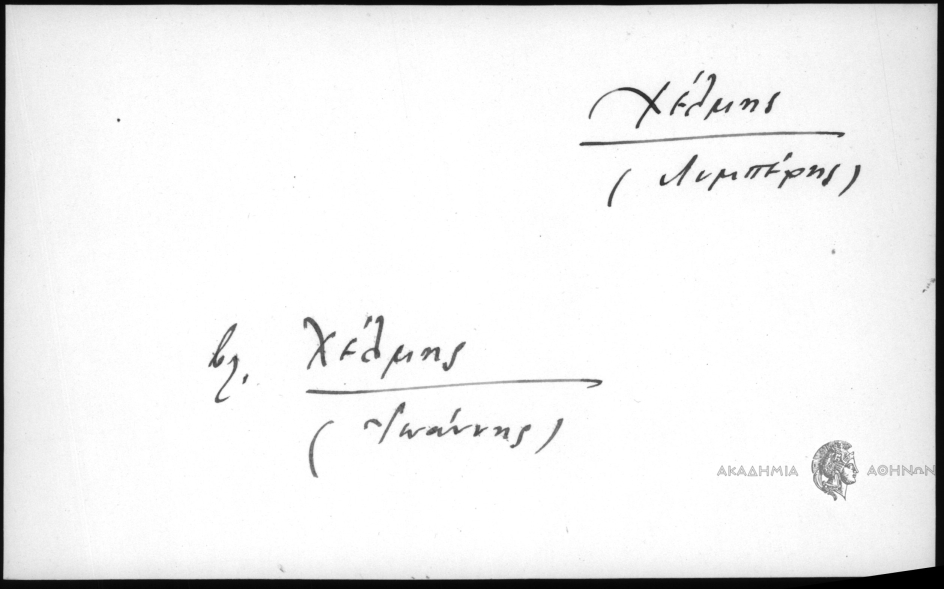 Χέλμης
(Λυμπέρης)
βλ. Χέλμης
(Ἰωάννης)
ΑΚΑΔΗΜΙΑ ΑΘΗΝΩΝ